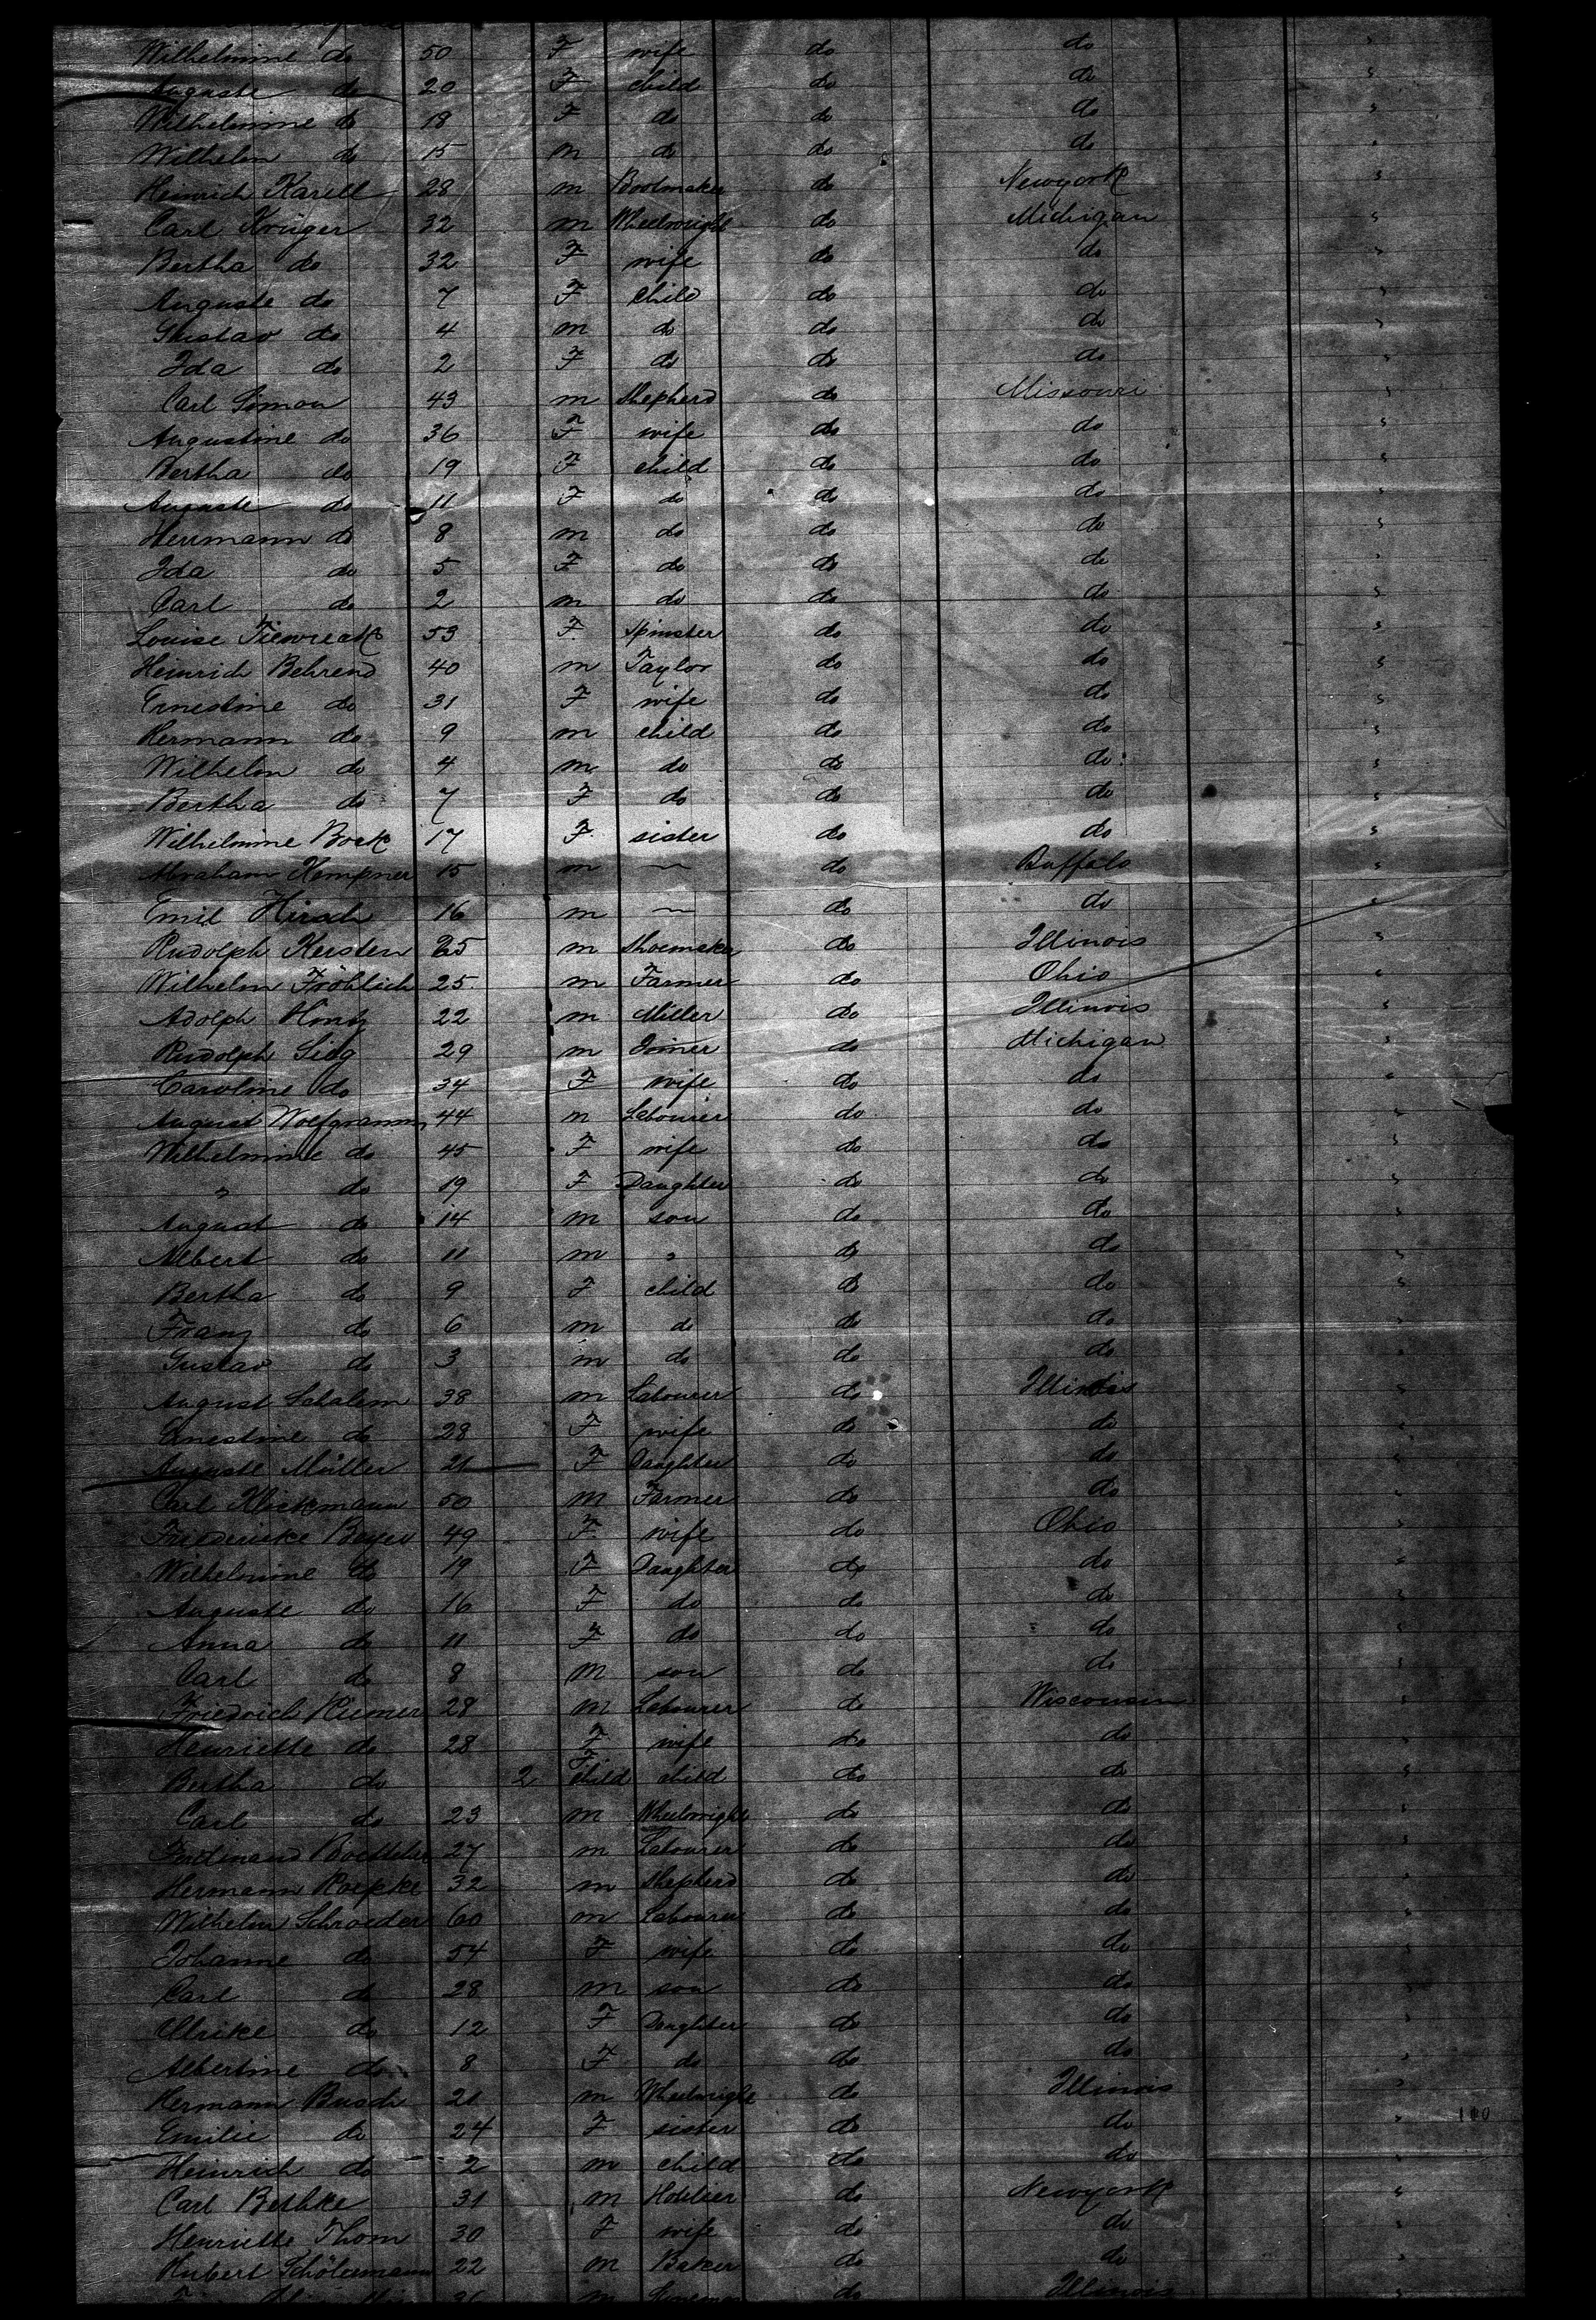 Wilhelmine do 50 F wife do do
Auguste do 20 F child do do
Wilhelmine do 18 F do do do
Wilhelm do 15 m do do do
Heinrich Karell 28 m Bootmaker do Newyork
Carl Krüger 32 m Wheelwright do Michigan
Bertha do 32 F wife do do
Auguste do 7 F child do do
Gustav do 4 m do do do
Ida do 2 F do do do
Carl Simon 43 m Shepherd do Missouri
Augustine do 36 F wife do do
Bertha do 19 F child do do
Auguste do 11 F do do do
Herrmann do 8 m do do do
Ida do 5 F do do do
Carl do 2 m do do do
Louise 53 F Spinster do do
Heinrich Behrend 40 m Taylor do do
Ernestine do 31 F wife do do
Hermann do 9 m child do do
Wilhelm do 4 m do do do
Bertha do 7 F do do do
Wilhelmine Bock 17 F sister do do
Abraham Kempner 15 m — do Buffalo
Emil Hirsch 16 m — do do
Rudolph Kersten 25 m Shoemaker do Illinois
Wilhelm Fröhlich 25 m Farmer do Ohio
Adolph 22 m Miller do Illinois
Rudolph Sieg 29 m Joiner do Michigan
Caroline do 34 F wife do do
August Wolfgramm 44 m Labourer do do
Wilhelmine do 45 F wife do do
" do 19 F Daughter do do
August do 14 m son do do
Albert do 11 m " do do
Bertha do 9 F child do do
Franz do 6 m do do do
Gustav do 3 m do do do
August Schalem 38 m Labourer do Illinois
Ernestine do 28 F wife do do
Auguste Müller 21 F Daughter do do
Carl Klickmann 50 m Farmer do do
Friederike Beyer 49 F wife do Ohio
Wilhelmine do 19 F Daughter do do
Auguste do 16 F do do do
Anna do 11 F do do do
Carl do 8 m son do do
Friedrich Riemer 28 m Labourer do Wisconsin
Henriette do 28 F wife do do
Bertha do 2 F child child do do
Carl do 23 m Wheelwright do do
Ferdinand Boettcher 27 m Labourer do do
Hermann Roepke 32 m Shepherd do do
Wilhelm Schroeder 60 m Labourer do do
Johanne do 54 F wife do do
Carl do 28 m son do do
Ulrike do 12 F Daughter do do
Albertine do 8 F do do do
Hermann Busch 21 m Wheelwright do Illinois
Emilie do 24 F sister do do
Heinrich do 2 m child do do
Carl Bethke 31 m Hotelier do Newyork
Henriette Thom 30 F wife do do
Hubert 22 m Baker do do
m do Illinois